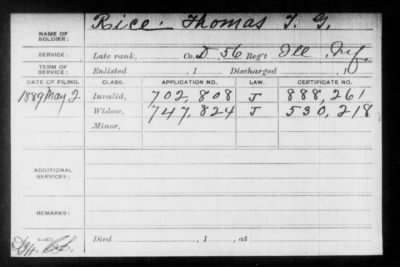 NAME OF SOLDIER: Rice. Thomas T. G.
SERVICE: Late rank, Co. D, 56 Reg't Ill Inf.
TERM OF SERVICE: Enlisted , 1 Discharged , 1
DATE OF FILING. CLASS. APPLICATION NO. LAW. CERTIFICATE NO.
1889 May 2 Invalid, 702,808 J 888,261
Widow, 747,824 J 530,218
Minor,
ADDITIONAL SERVICES:
REMARKS:
Died , 1 , at